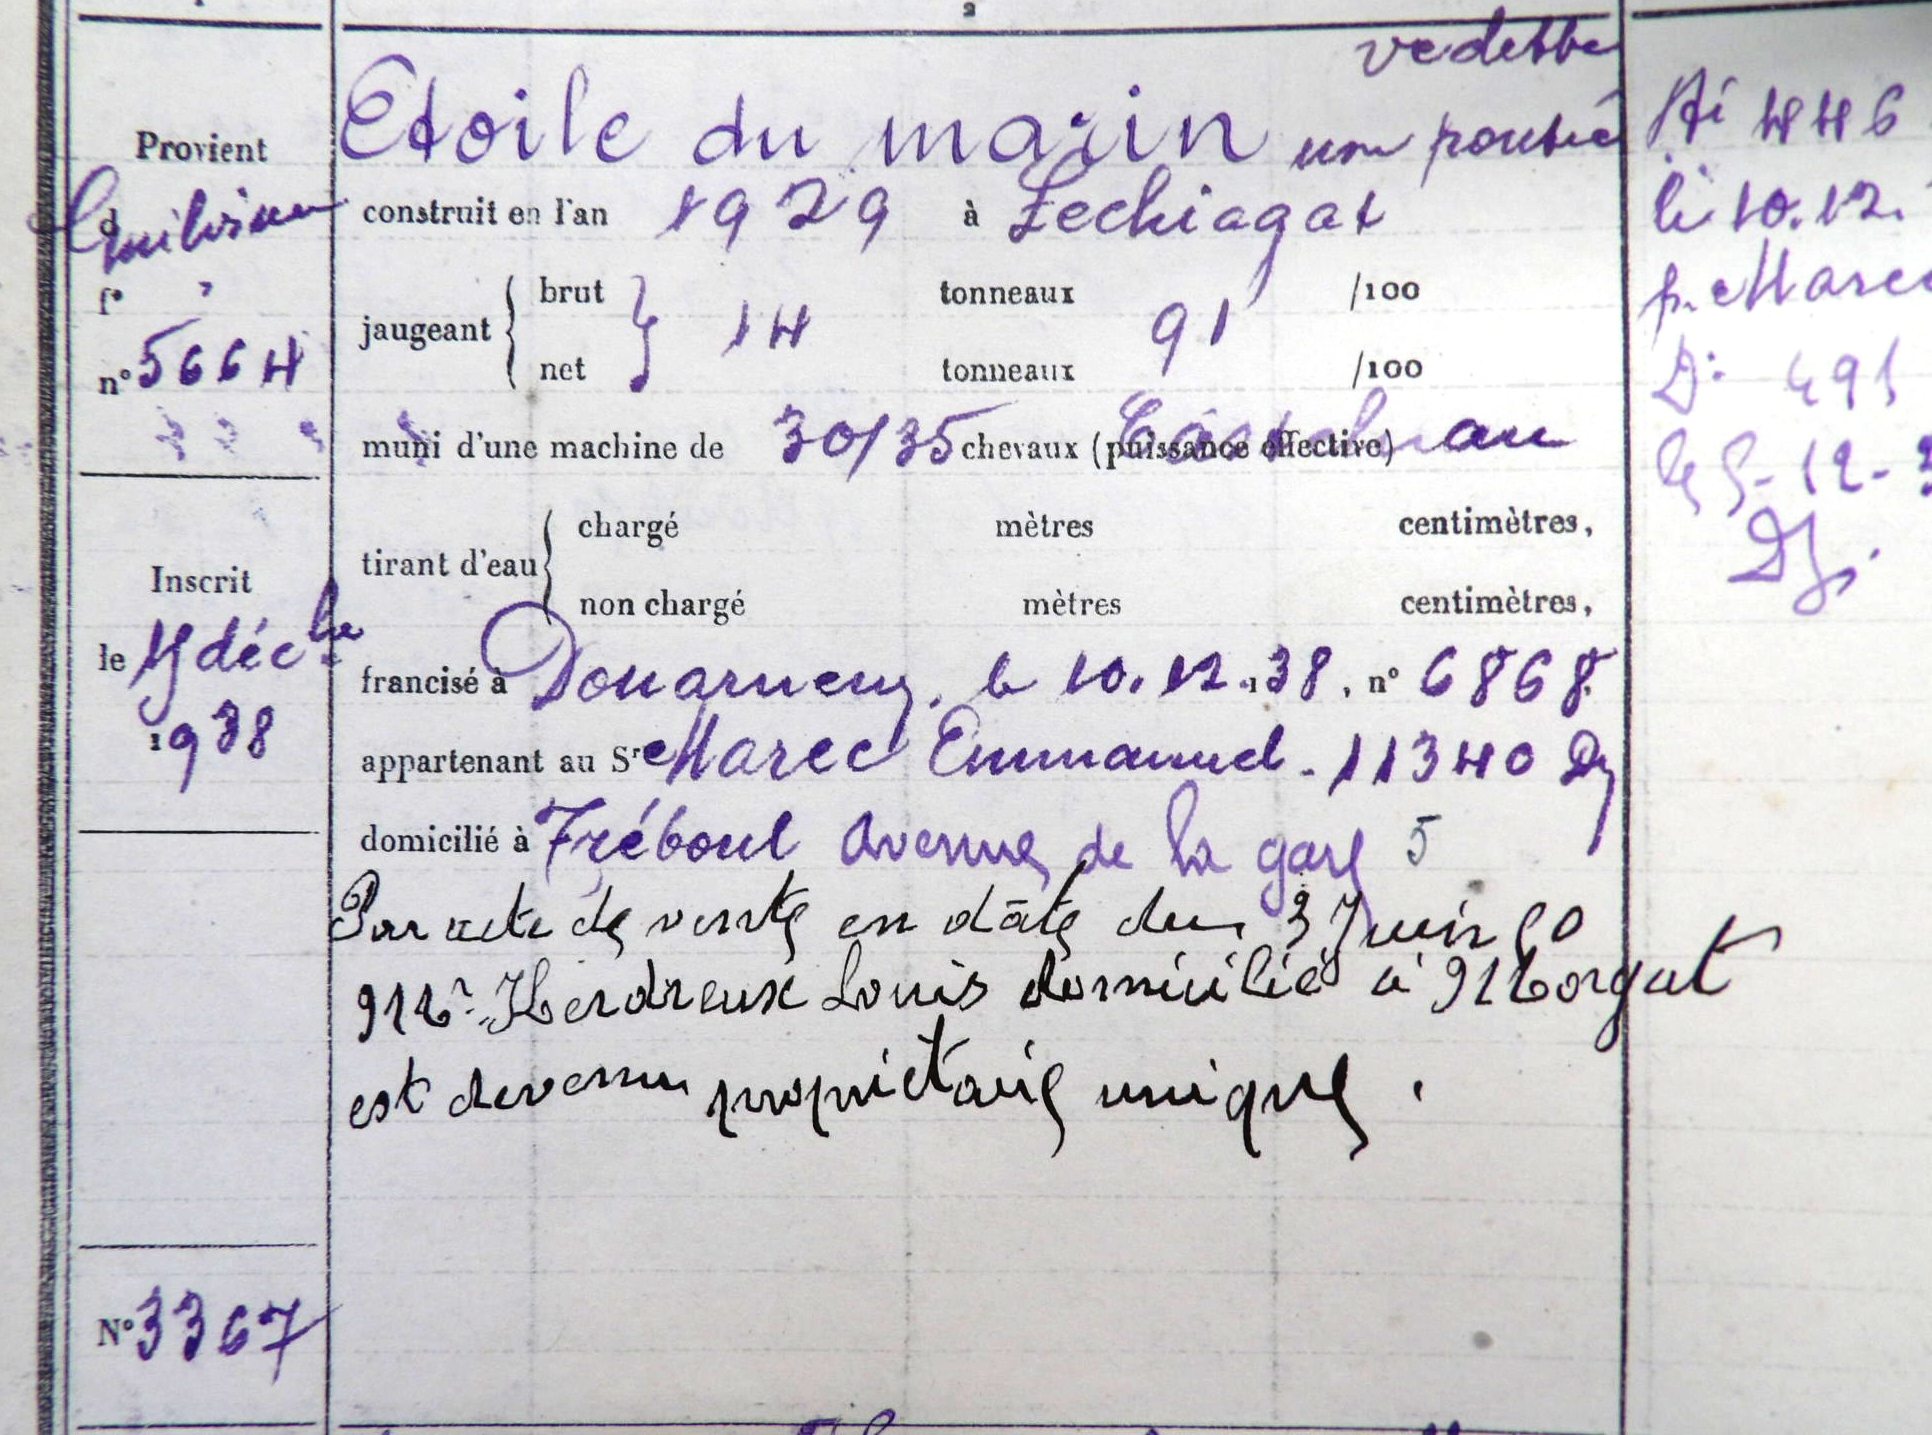 2
Provient
d Guilvinec
f°
n° 5664
Inscrit
le 4 déc bre
1938
N° 3367
vedette
Etoile du marin non ponté
construit en l'an 1929 à Lechiagat
jaugeant { brut } 14 tonneaux 91 /100
net tonneaux /100
muni d'une machine de 30/35 chevaux (puissance effective)
tirant d'eau { chargé mètres centimètres,
non chargé mètres centimètres,
francisé à Douarnenez. le 10.12.38, n° 6868
appartenant au Sr Marec Emmanuel - 11340 Dz
domicilié à Tréboul avenue de la gare 5
Par acte de vente en date du 3 Juin 50
Mr. Herdreux Louis domicilié à Morgat
est devenu propriétaire unique.
Ai 446
le 10.12.
p. Marec
D: 491
le 5-12-3